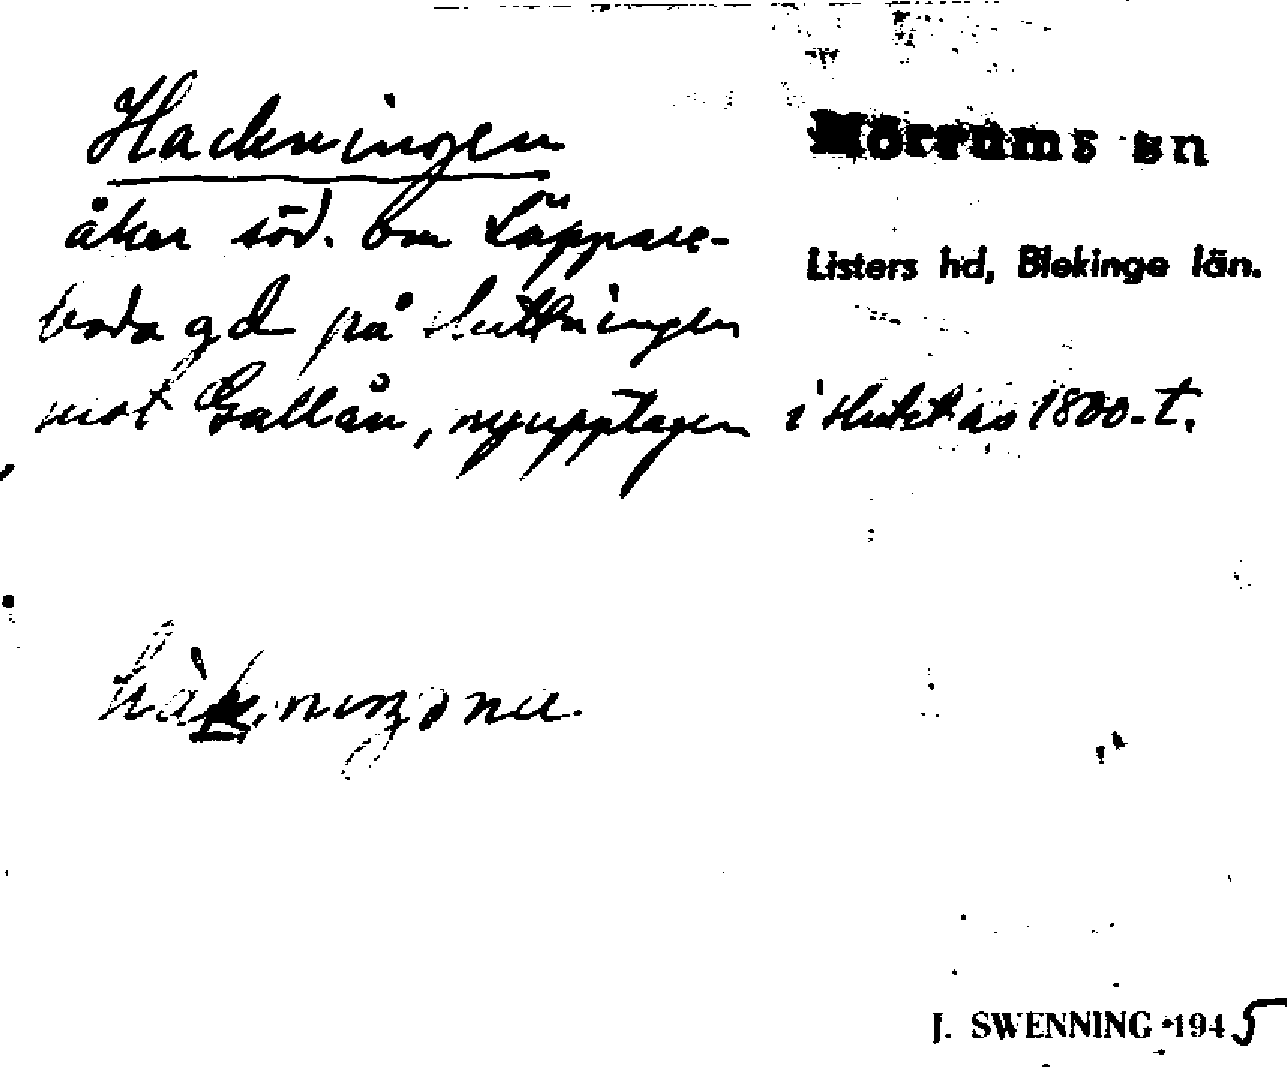 Hackningen
Mörrums sn
åker söd. om Läppare-
Listers hd, Blekinge län.
boda gd på sluttningen
mot Gallån, nyupptagen i slutet av 1800-t.
J. SWENNING 1945